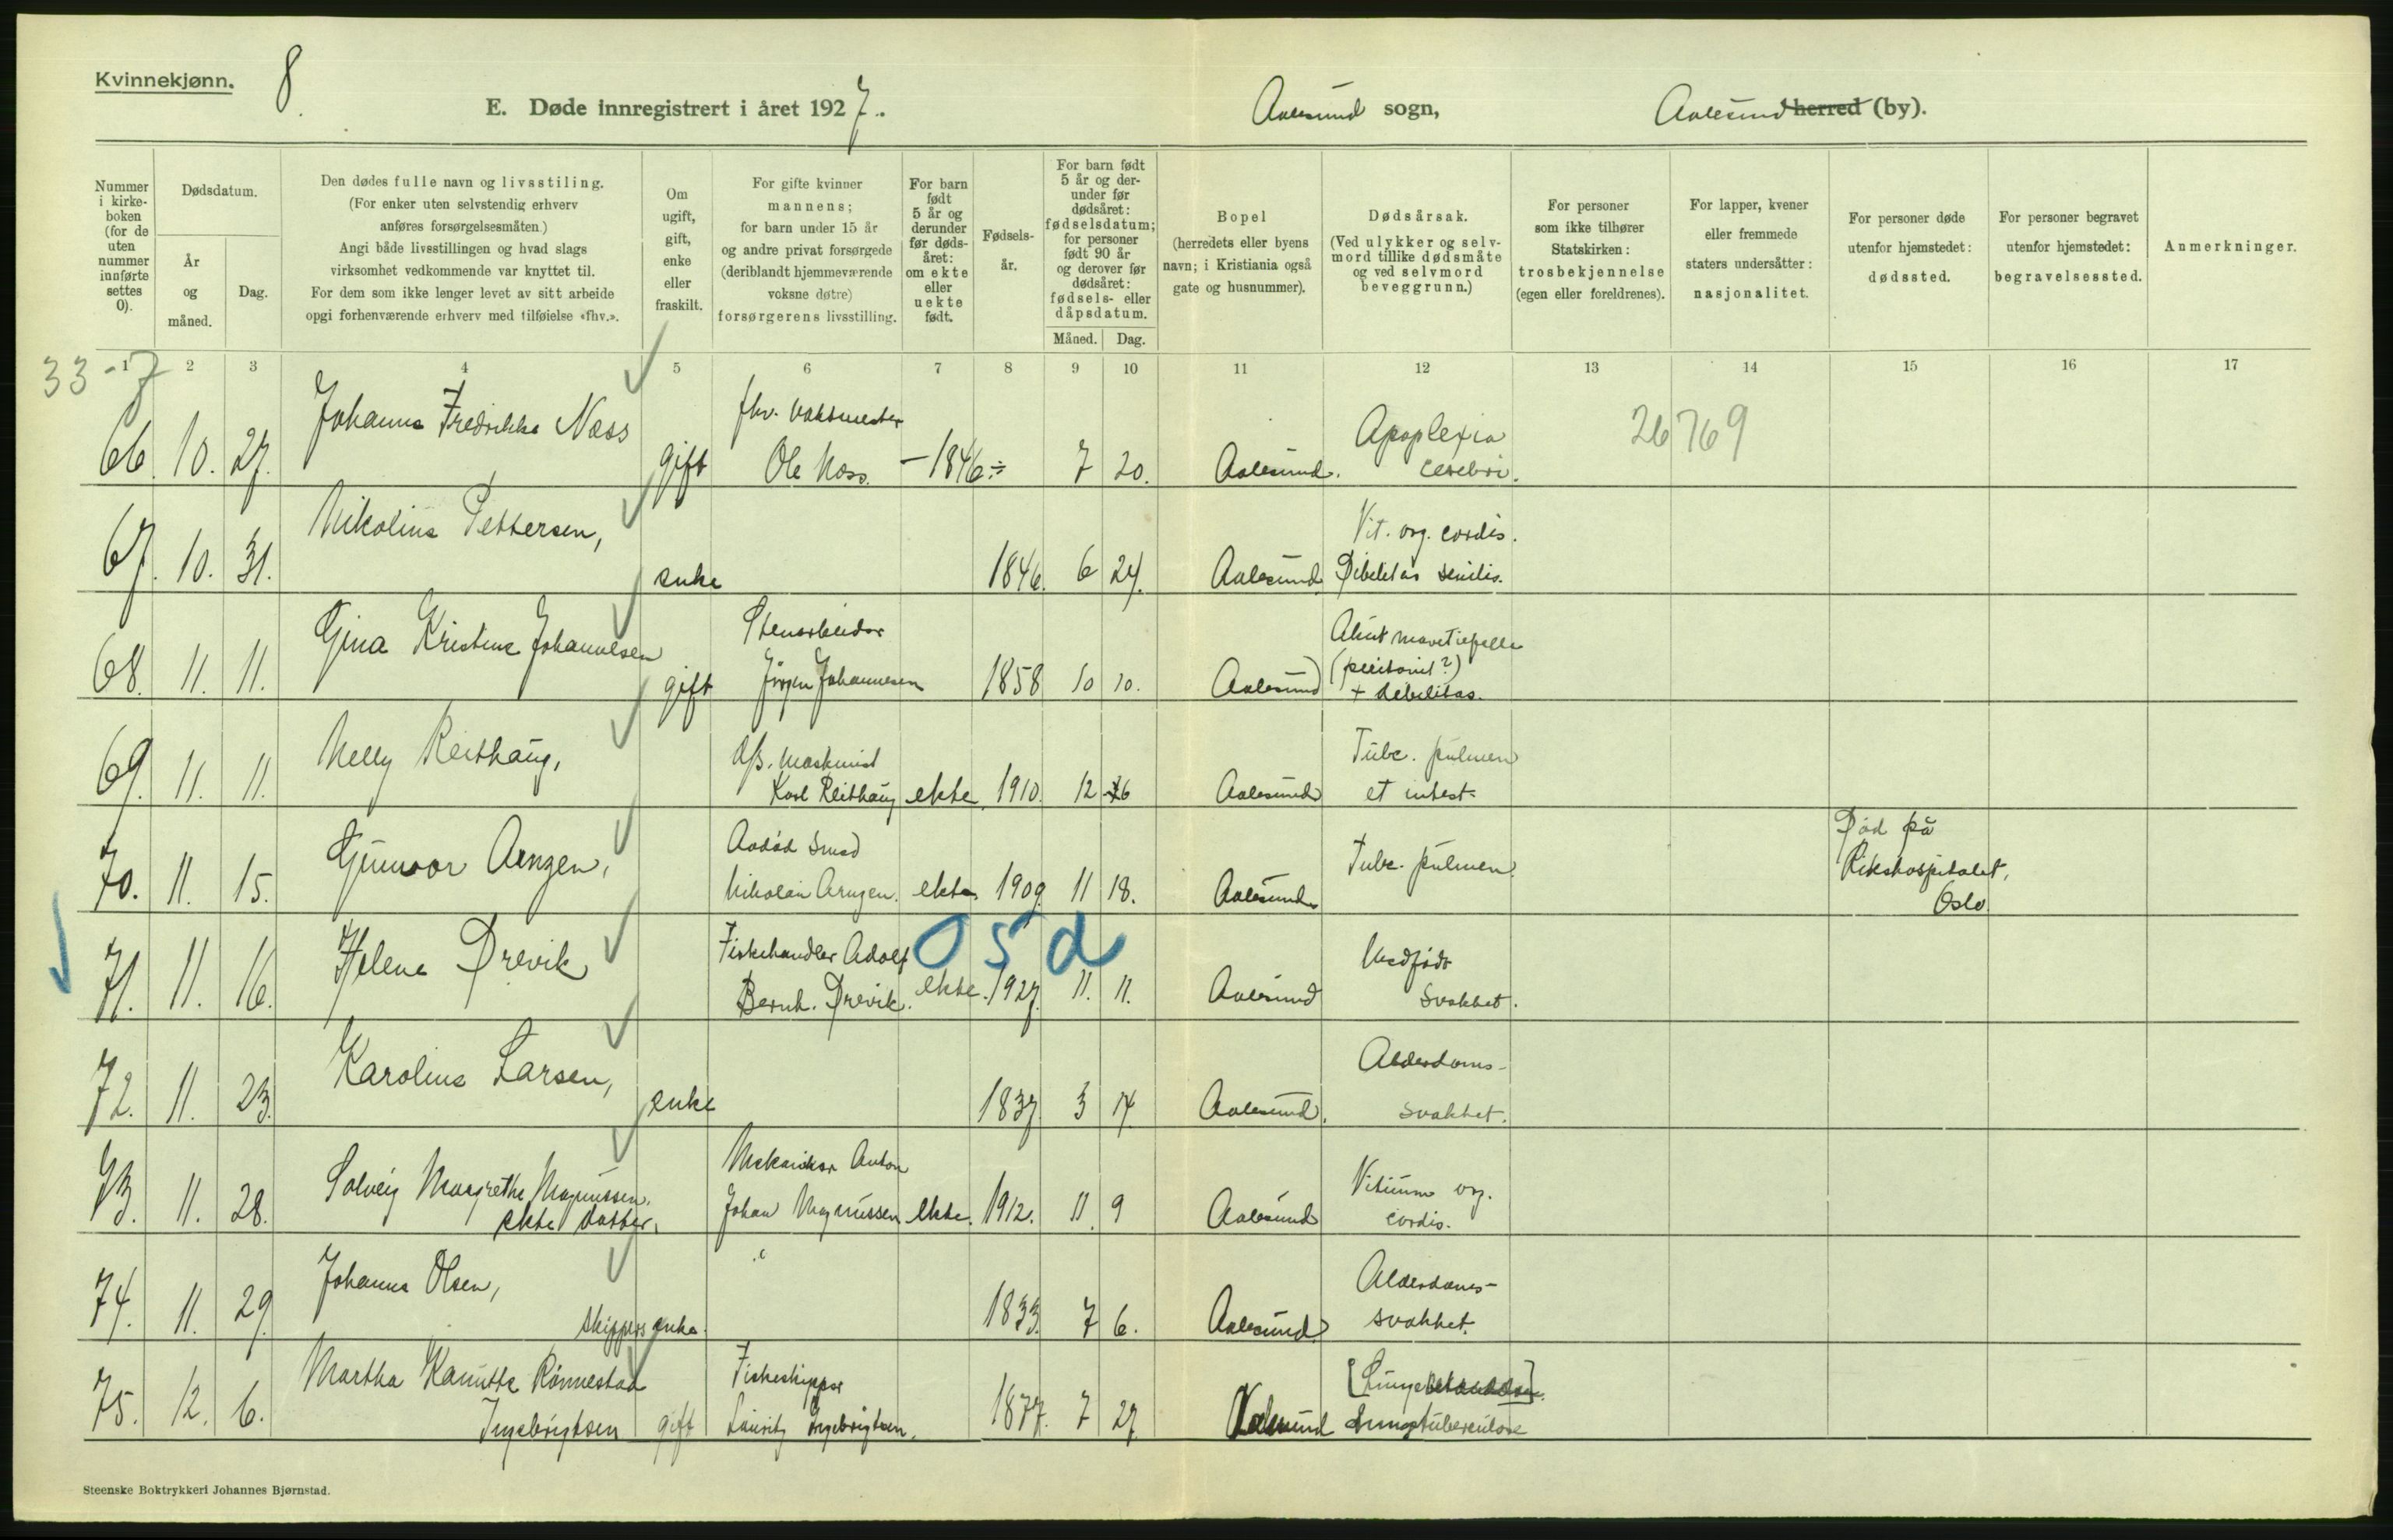 Kvinnekjønn.
8.
E. Døde innregistrert i året 1927.
Aalesund sogn,
Aalesund herred (by).
Nummer i kirke-boken (for de uten nummer innførte settes 0).
Dødsdatum.
År og måned.
Dag.
Den dødes fulle navn og livsstiling.
(For enker uten selvstendig erhverv
anføres forsørgelsesmåten.)
Angi både livsstillingen og hvad slags
virksomhet vedkommende var knyttet til.
For dem som ikke lenger levet av sitt arbeide
opgi forhenværende erhverv med tilføielse «fhv.».
Om ugift, gift, enke eller fraskilt.
For gifte kvinner
mannens;
for barn under 15 år
og andre privat forsørgede
(deriblandt hjemmeværende
voksne døtre)
forsørgerens livsstilling.
For barn født 5 år og derunder før døds-året: om ekte eller uekte født.
Fødsels-år.
For barn født 5 år og der-under før dødsåret: fødselsdatum; for personer født 90 år og derover før dødsåret: fødsels- eller dåpsdatum.
Måned. Dag.
Bopel
(herredets eller byens
navn; i Kristiania også
gate og husnummer).
Dødsårsak.
(Ved ulykker og selv-
mord tillike dødsmåte
og ved selvmord
beveggrunn.)
For personer
som ikke tilhører
Statskirken:
trosbekjennelse
(egen eller foreldrenes).
For lapper, kvener
eller fremmede
staters undersåtter:
nasjonalitet.
For personer døde
utenfor hjemstedet:
dødssted.
For personer begravet
utenfor hjemstedet:
begravelsessted.
Anmerkninger.
1 2 3 4 5 6 7 8 9 10 11 12 13 14 15 16 17
33-7
26769
Johanna Fredrikke Næss fhv. Vaktmester Apoplexia
66. 10. 27. gift Ole Næss. - 1846 ÷ 7 20. Aalesund. cerebri.
Nikoline Pettersen, Vit. org. cordis.
67. 10. 31. enke 1846. 6 24. Aalesund Debilitas senilis.
Gina Kristine Johannesen Stenarbeider Akut mavetilfelle
(peritonit?)
68. 11. 11. gift Jørgen Johannesen 1858 10 10. Aalesund + debilitas.
Nelly Reithaug, Maskinist Tubc. pulmen
69. 11. 11. Karl Reithaug ekte. 1910. 12 26 Aalesund et intest.
Gunvor Arngen, Avdød Smed Tubc. pulmen. Død på
Rikshospitalet,
70. 11. 15. Nikolai Arngen. ekte. 1909 11 18. Aalesund Oslo
O 5 d
Helene Drevik Fiskehandler Adolf Medfødt
71. 11. 16. Bernh. Drevik. ekte. 1927. 11. 11. Aalesund svakhet.
Karoline Larsen, Alderdoms-
72. 11. 23. enke 1837 3 14. Aalesund. svakhet.
Solveig Margrethe Magnussen, Mekaniker Anton Vitium org.
73. 11. 28. ekte datter. Johan Magnussen ekte. 1912. 11. 9 Aalesund cordis.
Johanna Olsen, Alderdoms-
74. 11. 29. skippers enke. 1833. 7 6. Aalesund svakhet.
Martha Kanutte Rönnestad Fiskeskipper
75. 12. 6. Ingebrigtsen gift Lauritz Ingebrigtsen. 1877. 7 27 Aalesund Lungetuberculose
Steenske Boktrykkeri Johannes Bjørnstad.